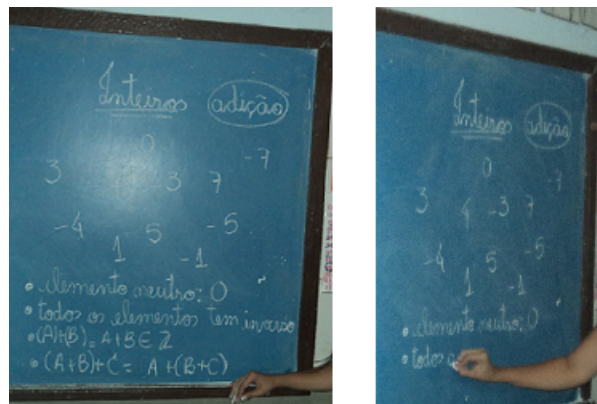 Inteiros adição
0 -7
3 -3 7
-4 5 -5
1 -1
• elemento neutro: 0
• todos os elementos tem inverso
• (A)+(B) = A+B ∈ ℤ
• (A+B)+C = A+(B+C)
Inteiros adição
0 -7
3 4 -3 7
-4 5 -5
1 -1
• elemento neutro: 0
• todos